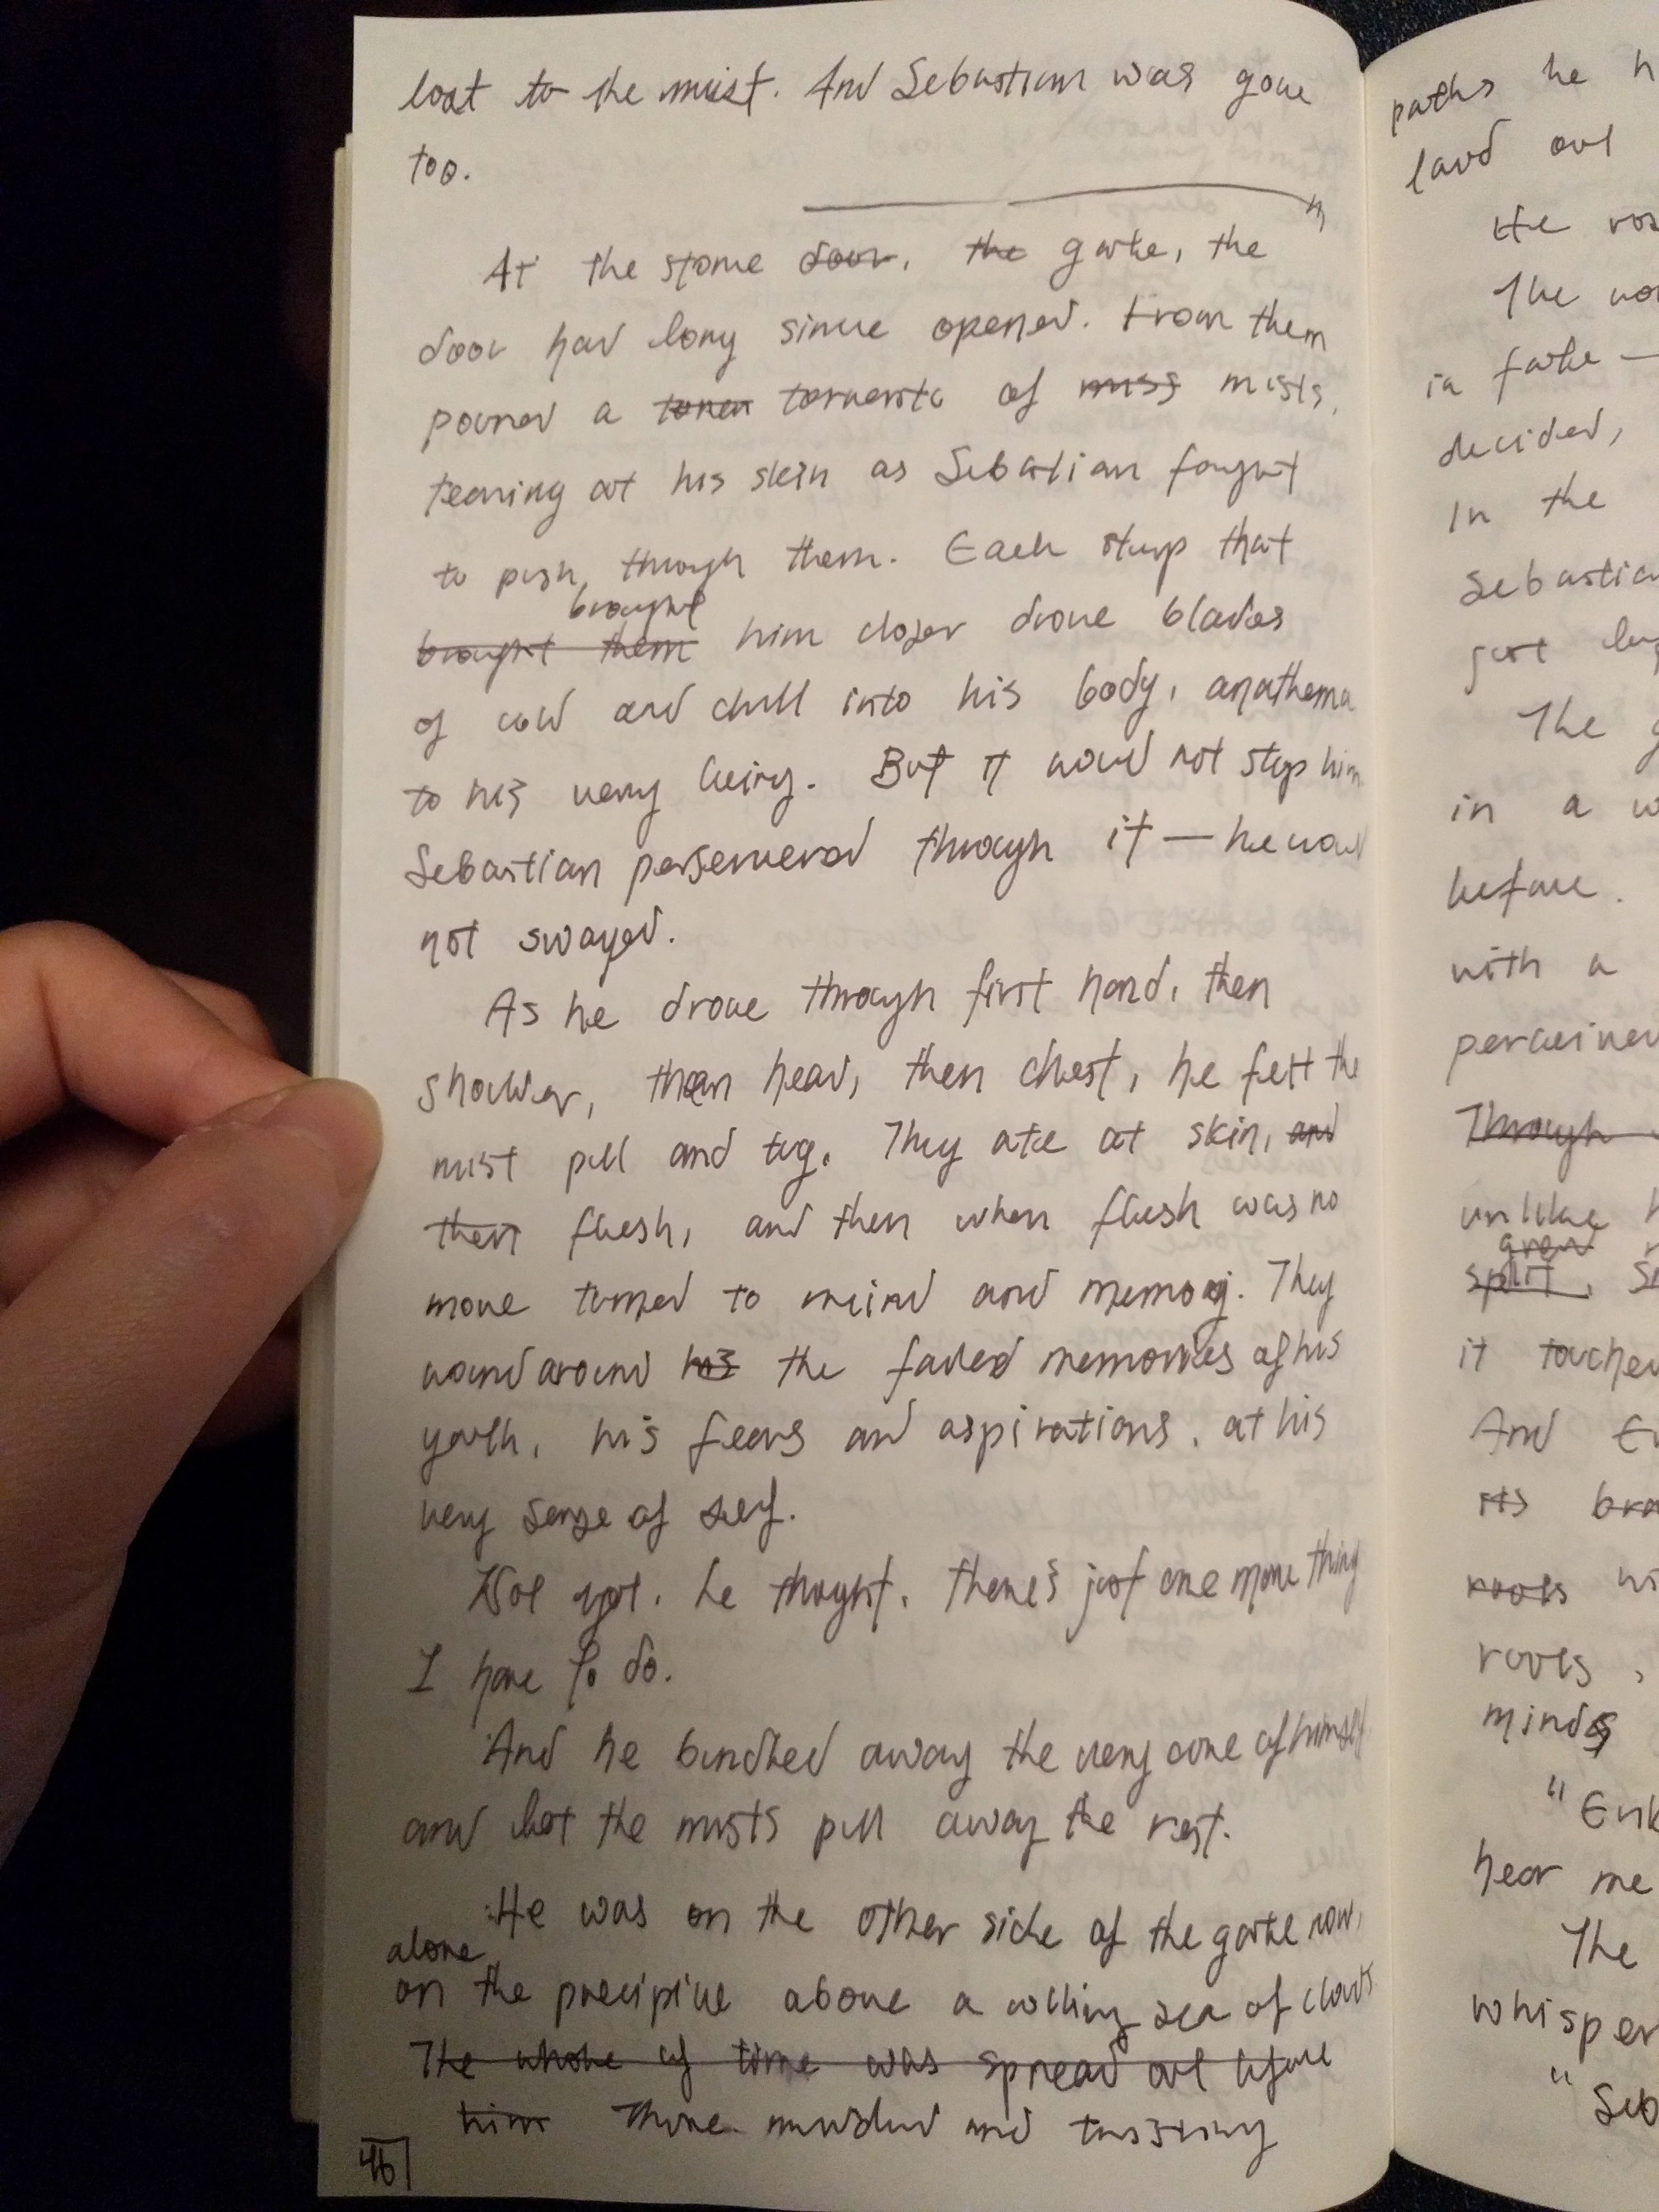 lost to the mist. And Sebastian was gone
too.
At the stone door, the gate, the
door had long since opened. From them
poured a torren torrents of miss mists,
tearing at his skin as Sebatian fought
to push through them. Each step that
brought
brought them him closer drove blades
of cold and chill into his body, anathema
to his very being. But it would not stop him
Sebastian persevered through it — he would
not swayed.
As he drove through first hand, then
shoulder, then head, then chest, he felt the
mist pull and tug. They ate at skin, and
then flesh, and then when flesh was no
more turned to mind and memory. They
wound around his the faded memories of his
youth, his fears and aspirations, at his
very sense of self.
Not yet, he thought, there's just one more thing
I have to do.
And he bundled away the very core of himself
and let the mists pull away the rest.
He was on the other side of the gate now,
alone
on the precipice above a sea of clouds
The whole of time was spread out before
him There and twisting
46
paths he h
land out
He
The
in fate —
decided,
In the
Sebastia
just
The g
in a w
before.
with a
perceived
Through
unlike h
grew
split, S
it touched
And E
its bra
roots wi
roots,
minds
"Erik
hear me
The
whisper
"Seb